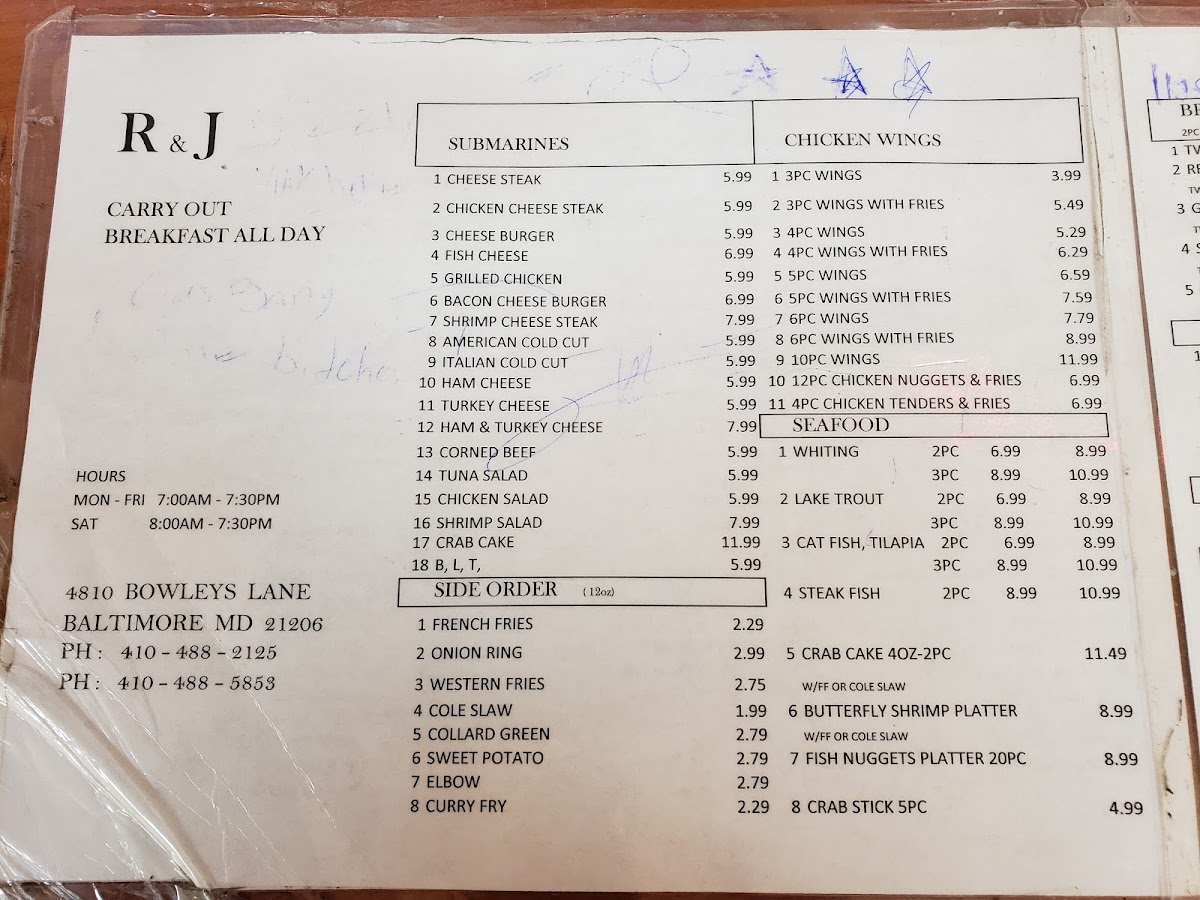 R & J
CARRY OUT
BREAKFAST ALL DAY
HOURS
MON - FRI 7:00AM - 7:30PM
SAT 8:00AM - 7:30PM
4810 BOWLEYS LANE
BALTIMORE MD 21206
PH: 410-488-2125
PH: 410-488-5853
SUBMARINES
1 CHEESE STEAK 5.99
2 CHICKEN CHEESE STEAK 5.99
3 CHEESE BURGER 5.99
4 FISH CHEESE 6.99
5 GRILLED CHICKEN 5.99
6 BACON CHEESE BURGER 6.99
7 SHRIMP CHEESE STEAK 7.99
8 AMERICAN COLD CUT 5.99
9 ITALIAN COLD CUT 5.99
10 HAM CHEESE 5.99
11 TURKEY CHEESE 5.99
12 HAM & TURKEY CHEESE 7.99
13 CORNED BEEF 5.99
14 TUNA SALAD 5.99
15 CHICKEN SALAD 5.99
16 SHRIMP SALAD 7.99
17 CRAB CAKE 11.99
18 B, L, T, 5.99
SIDE ORDER (12oz)
1 FRENCH FRIES 2.29
2 ONION RING 2.99
3 WESTERN FRIES 2.75
4 COLE SLAW 1.99
5 COLLARD GREEN 2.79
6 SWEET POTATO 2.79
7 ELBOW 2.79
8 CURRY FRY 2.29
CHICKEN WINGS
1 3PC WINGS 3.99
2 3PC WINGS WITH FRIES 5.49
3 4PC WINGS 5.29
4 4PC WINGS WITH FRIES 6.29
5 5PC WINGS 6.59
6 5PC WINGS WITH FRIES 7.59
7 6PC WINGS 7.79
8 6PC WINGS WITH FRIES 8.99
9 10PC WINGS 11.99
10 12PC CHICKEN NUGGETS & FRIES 6.99
11 4PC CHICKEN TENDERS & FRIES 6.99
SEAFOOD
1 WHITING 2PC 6.99 8.99
3PC 8.99 10.99
2 LAKE TROUT 2PC 6.99 8.99
3PC 8.99 10.99
3 CAT FISH, TILAPIA 2PC 6.99 8.99
3PC 8.99 10.99
4 STEAK FISH 2PC 8.99 10.99
5 CRAB CAKE 4OZ-2PC 11.49
W/FF OR COLE SLAW
6 BUTTERFLY SHRIMP PLATTER 8.99
W/FF OR COLE SLAW
7 FISH NUGGETS PLATTER 20PC 8.99
8 CRAB STICK 5PC 4.99
2PC
1 TW
2 RE
3 G
4 S
5
1